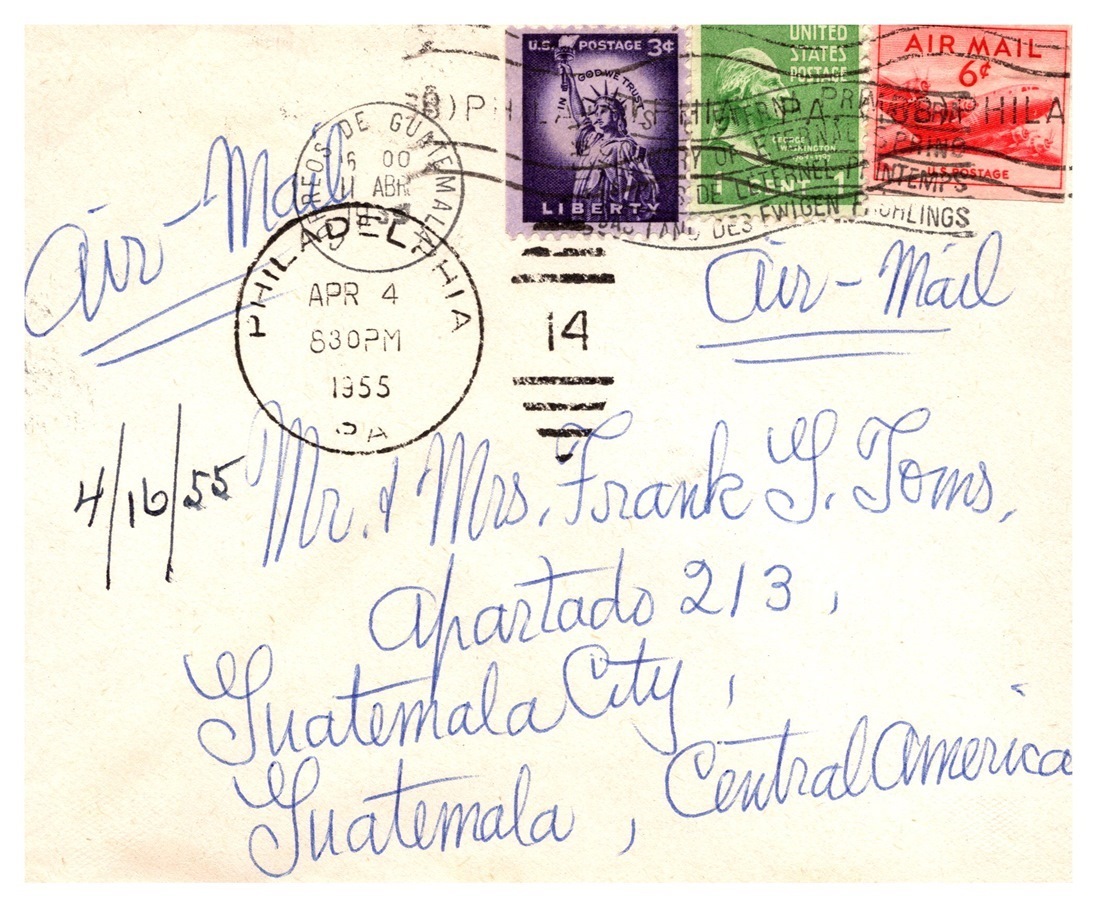 U.S. POSTAGE 3¢
IN GOD WE TRUST
LIBERTY
UNITED
STATES
POSTAGE
GEORGE
WASHINGTON
1 CENT 1
AIR MAIL
6¢
U.S. POSTAGE
DE GUATEMALA
11 ABR
PHILA
PA.
OF ETERNAL SPRING
DE L'ETERNEL PRINTEMPS
LAND DES EWIGEN FRÜHLINGS
Air-Mail
Air-Mail
PHILADELPHIA
APR 4
830PM
1955
PA
14
4/16/55
Mr. & Mrs. Frank G. Toms,
Apartado 213,
Guatemala City,
Guatemala, Central America